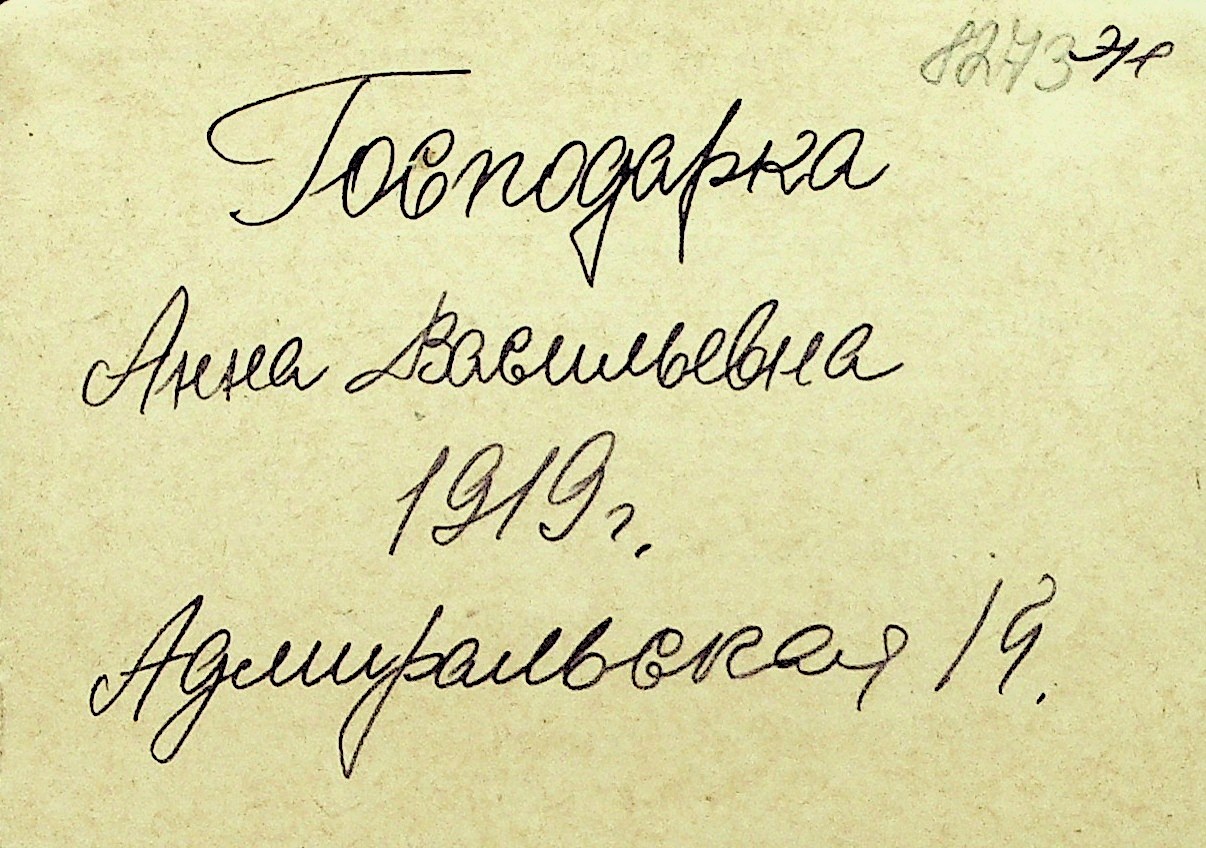 8273
Господарка
Анна Васильевна
1919г.
Адмиральская 14.